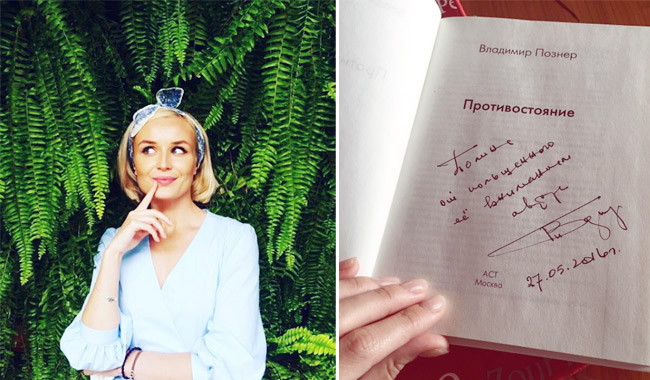 Владимир Познер
Противостояние
Полине
от польщенного
её вниманием
автора
АСТ
Москва
27.05.2016г.